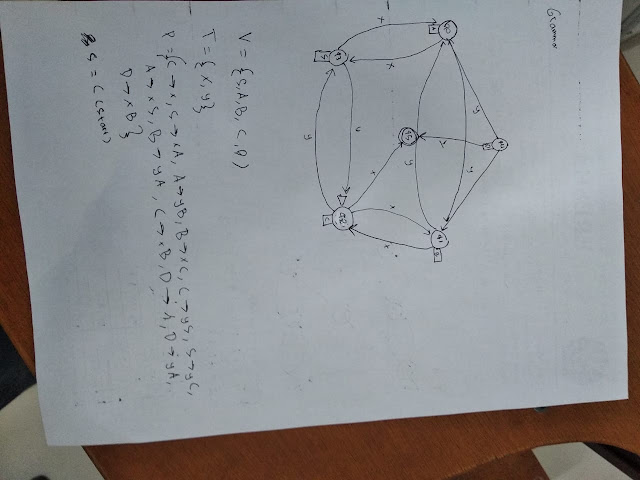 Grammar
V = {S, A, B, C, D}
T = {x, y}
P = {C → x, S → xA, A → yB, B → xC, C → yS, S → yC,
A → xS, B → yA, C → xB, D → A, D → yA,
D → xB}
S = C (start)
x
x
y
y
y
y
x
x
x
x
y
q2
q1
A
B
C